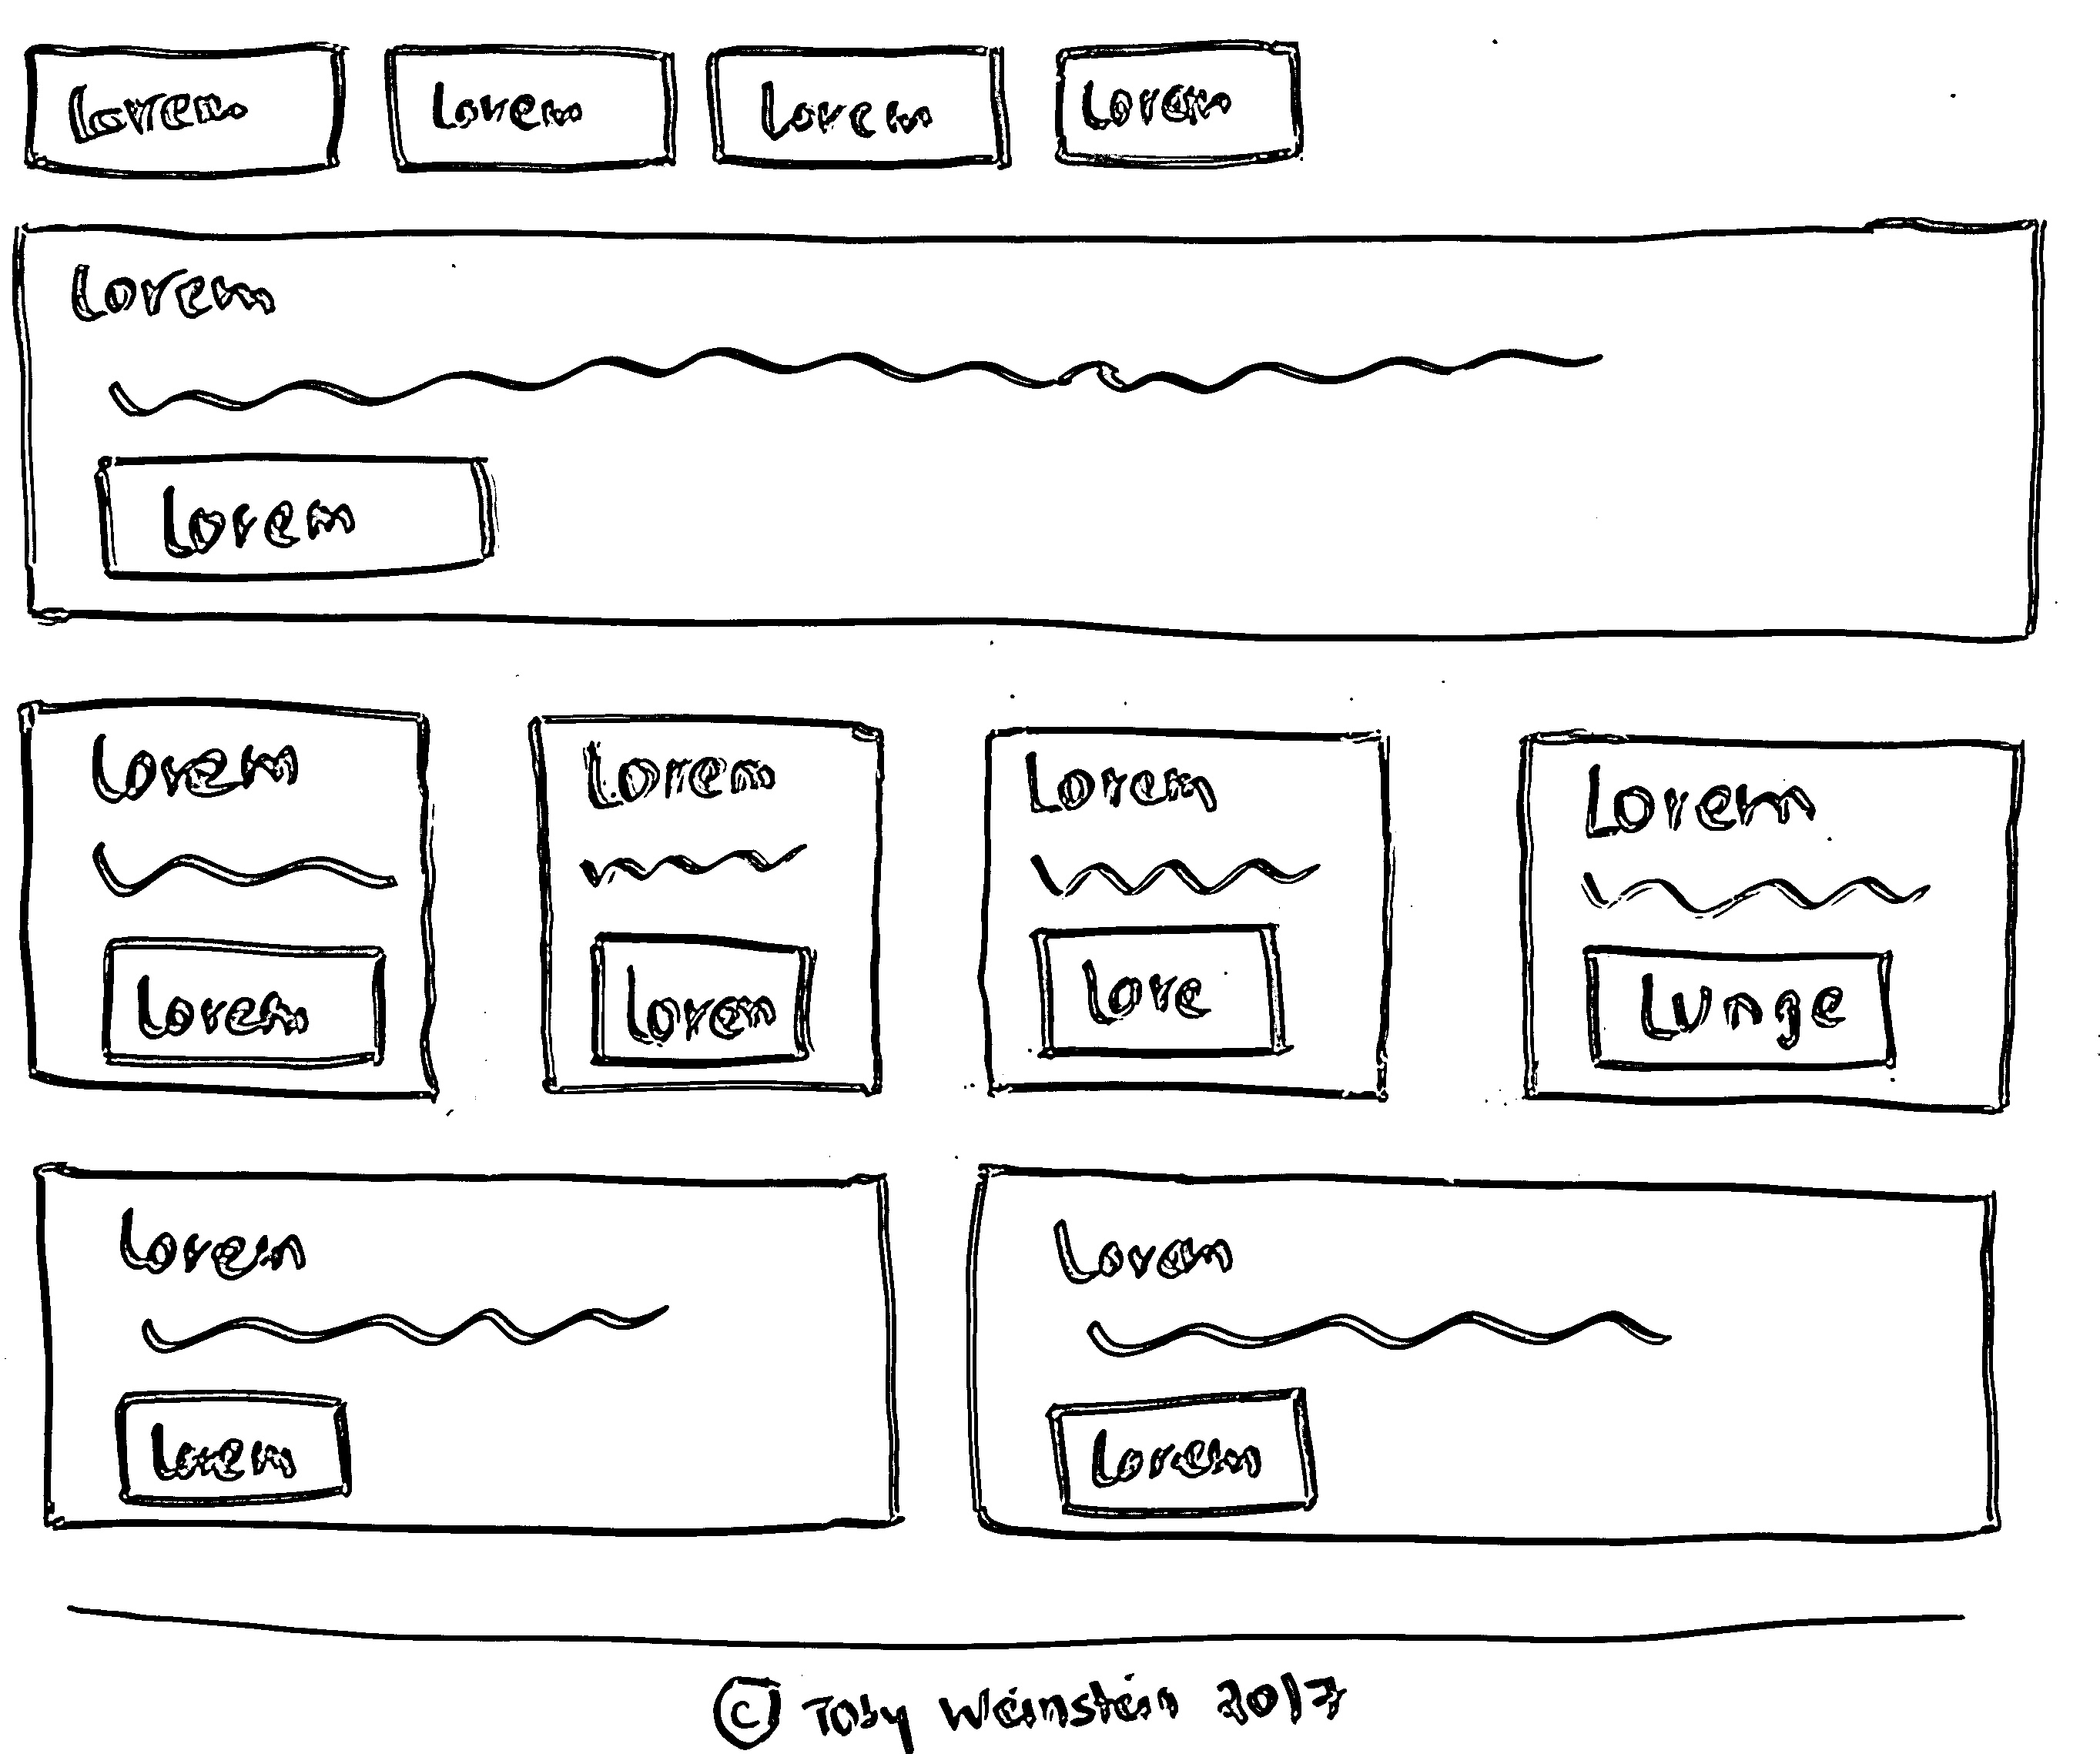 Lorem Lorem Lorem Lorem
Lorem
Lorem
Lorem Lorem Lorem Lorem
Lorem Lorem Lore Lunge
Lorem Lorem
Lorem Lorem
© Toby Weinstein 2017